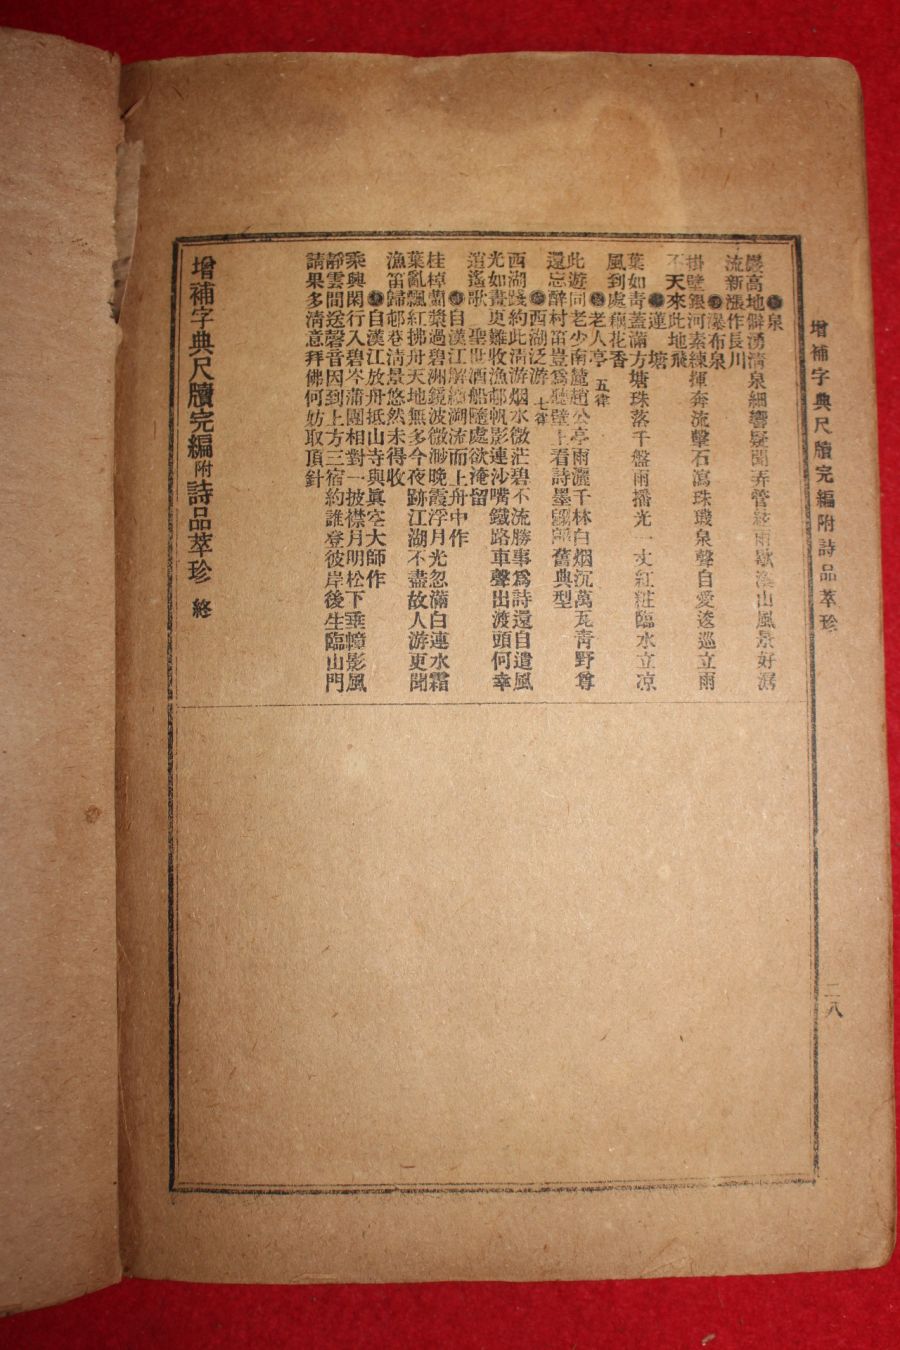 增補字典尺牘完編附詩品萃珍
二八
泉
巖高地僻湧淸泉細響疑聞弄管絃雨歇溪山風景好潺
流新漲作長川
瀑布泉
掛壁銀河素練揮奔流擊石瀉珠璣泉聲自愛逡巡立雨
不天來此地飛
蓮塘
葉如靑蓋滿方塘珠落千盤雨播光一丈紅粧臨水立凉
風到處藕花香
老人亭 五律
此遊同老少南麓趙公亭雨灑千林白烟沉萬瓦靑野尊
還忘醉村笛豈爲聽壁上看詩墨 舊典型
西湖泛游 七律
西湖踐約此淸游烟水微茫碧不流勝事爲詩還自遣風
光如畵更難收漁邨帆影連沙嘴鐵路車聲出渡頭何幸
逍遙歌聖世酒船隨處欲淹留
自漢江解纜湖流而上舟中作
桂棹蘭槳過碧洲鏡波微渺晚霞浮月光忽滿白連水霜
葉亂飄紅拂舟天地無多今夜跡江湖不盡故人游更聞
漁笛歸邨巷淸景悠然未得收
自漢江放舟抵山寺與眞空大師作
乘興閑行入碧岑蒲團相對一披襟月明松下垂幢影風
靜雲間送磬音因到上方三宿約誰登彼岸後生臨山門
請果多淸意拜佛何妨取頂針
增補字典尺牘完編附詩品萃珍 終